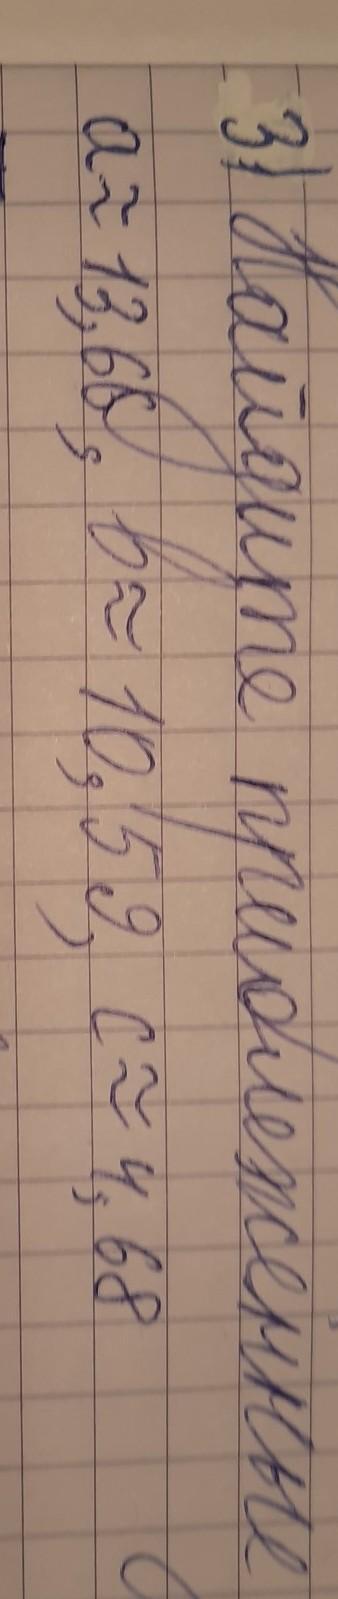 3) Найдите приближенные
a ≈ 13,66, b ≈ 10,59, c ≈ 4,68